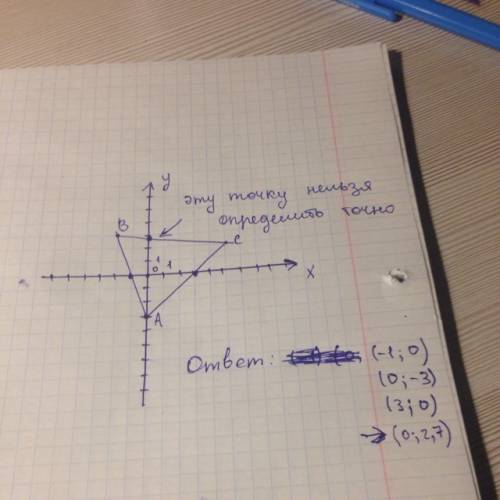 y
эту точку нельзя
определить точно
B
C
1
0 1
x
A
Ответ: (-1; 0)
(0; -3)
(3; 0)
→ (0; 2,7)